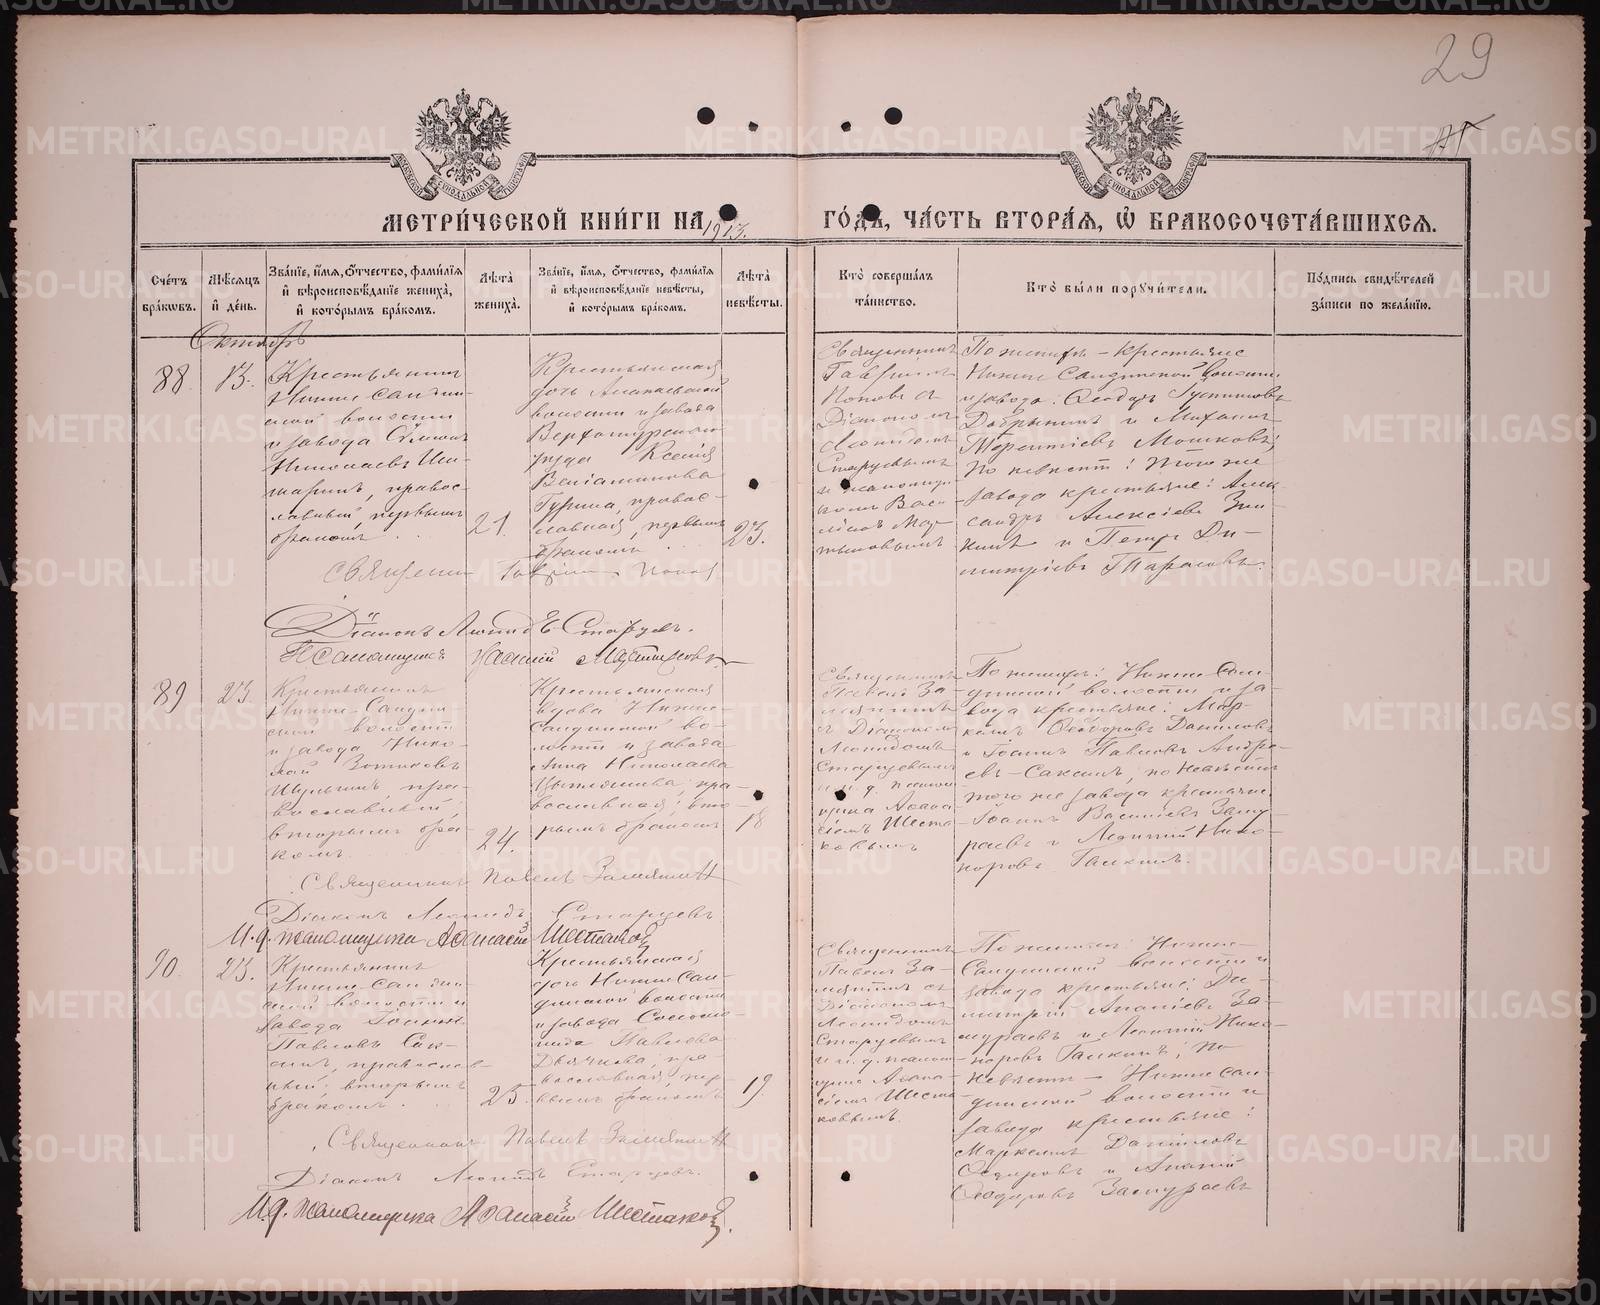 29
МЕТРИ́ЧЕСКОЙ КНИ́ГИ НА 1913. ГО́ДЪ, ЧА́СТЬ ВТОРА́Я, Ѡ҆ БРАКОСОЧЕТА́ВШИХСЯ.
Сче́тъ бра́кωвъ.
Мѣ́сяцъ и҆ де́нь.
Зва́нїе, и҆́мя, ѻ҆́тчество, фами́лїя и҆ вѣроисповѣ́данїе жениха̀, и҆ кото́рымъ бра́комъ.
Лѣ́та̀ жениха̀.
Зва́нїе, и҆́мя, ѻ҆́тчество, фами́лїя и҆ вѣроисповѣ́данїе невѣ́сты, и҆ кото́рымъ бра́комъ.
Лѣ́та̀ невѣ́сты.
Кто̀ соверша́лъ та́инство.
Кто̀ бы́ли порꙋчи́тели.
По́дпись свидѣ́телей за́писи по жела́нїю.
Октябрь
88
13.
Крестьянинъ
Нижне Салдин-
ской волости
и завода Симеон
Николаевъ
православный, первымъ
бракомъ
21.
Крестьянская
дочь Алапаевской
волости и завода
Верхотурскаго
уезда Ксенія
Веніаминова
Гурина, правос-
лавная, первымъ
бракомъ
23.
Священникъ
Гавріилъ
Поповъ съ
Діакономъ
Леонидомъ
Старцевымъ
и псаломщи-
комъ Васи-
ліемъ
По женихѣ - крестьяне
Нижне Салдинской волости
и завода: Ѳеодоръ Устиновъ
Добрынинъ и Михаилъ
Терентіевъ Мошковъ;
по невѣстѣ: того же
завода крестьяне: Алек-
сандръ Алексіевъ Зы-
кинъ и Петръ Ди-
митріевъ Тарасовъ.
Священникъ Гавріилъ Поповъ
Діаконъ Леонидъ Старцевъ.
Псаломщикъ Василій
89
23.
Крестьянинъ
Нижне-Салдин-
ской волости
и завода Нико-
лай Зотиковъ
Шульгинъ, пра-
вославный
вторымъ бра-
комъ
24.
Крестьянская
вдова Нижне-
Салдинской во-
лости и завода
Анна Николаева
пра-
вославная: вто-
рымъ бракомъ
18
Священникъ
Павелъ За-
мятинъ
съ Діакономъ
Леонидомъ
Старцевымъ
и и. д. псалом-
щика Аѳана-
сіемъ Шеста-
ковымъ
По женихѣ: Нижне Сал-
динской волости и за-
вода крестьяне: Мар-
келъ Ѳеодоровъ Даниловъ
и Іоаннъ Павловъ Андре-
евъ-Саксинъ, по невѣстѣ
того же завода крестьяне:
Іоаннъ Василіевъ Заму-
раевъ и Леонтій Нико-
норовъ Галкинъ.
Священникъ Павелъ Замятинъ
Діаконъ Леонидъ Старцевъ
И.д. псаломщика Аѳанасій Шестаковъ
90.
23.
Крестьянинъ
Нижне-Салдин-
ской волости и
завода Іоаннъ
Павловъ Сак-
синъ, православ-
ный: вторымъ
бракомъ
25.
Крестьянская
дочь Нижне Сал-
динской волости
и завода Соломо-
нида Павлова
Дьячкова, пра-
вославная, пер-
вымъ бракомъ
19.
Священникъ
Павелъ За-
мятинъ съ
Діакономъ
Леонидомъ
Старцевымъ
и и. д. псалом-
щика Аѳана-
сіемъ Шеста-
ковымъ.
По женихѣ: Нижне-
Салдинской волости и
завода крестьяне: Ди-
митрій Ананіевъ За-
мураевъ и Леонтій Нико-
норовъ Галкинъ; по
невѣстѣ - Нижне Сал-
динской волости и
завода крестьяне:
Маркелъ Даниловъ
Ѳеодоровъ и Ананій
Ѳеодоровъ Замураевъ
Священникъ Павелъ Замятинъ
Діаконъ Леонидъ Старцевъ.
И.д. псаломщика Аѳанасій Шестаковъ.
METRIKI.GASO-URAL.RU